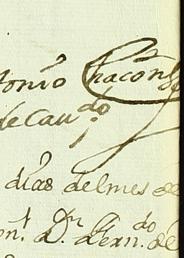 tonio Chacon
de Cau.do
dias del mes de
on.t D.n Fern.do de